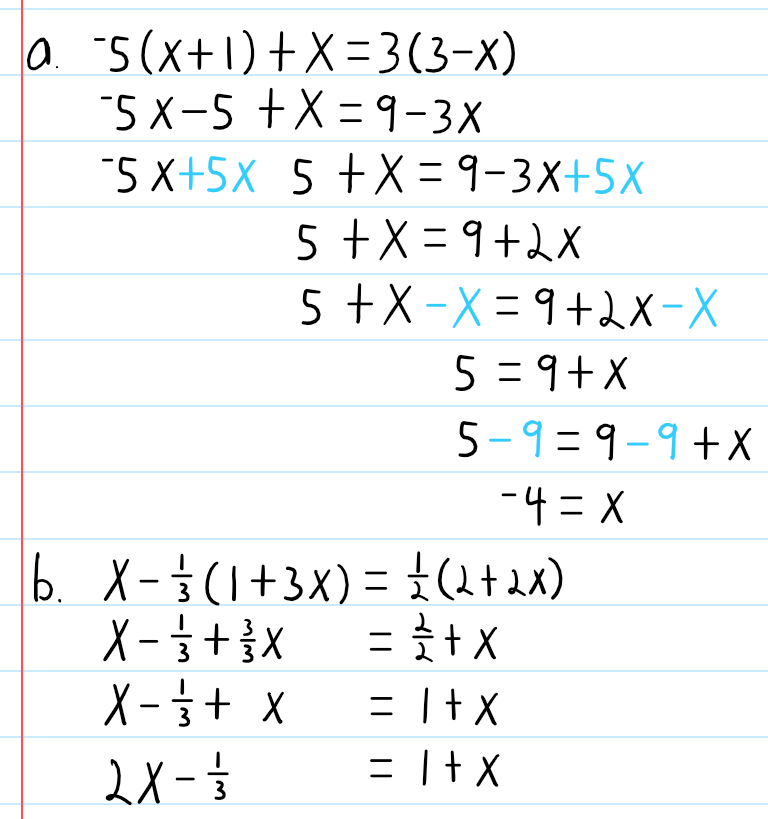 a. ⁻5(x+1)+x=3(3-x)
⁻5x-5+x=9-3x
⁻5x+5x 5+x=9-3x+5x
5+x=9+2x
5+x-x=9+2x-x
5=9+x
5-9=9-9+x
⁻4=x
b. x-⅓(1+3x)=½(2+2x)
x-⅓+3/3x=2/2+x
x-⅓+x=1+x
2x-⅓=1+x